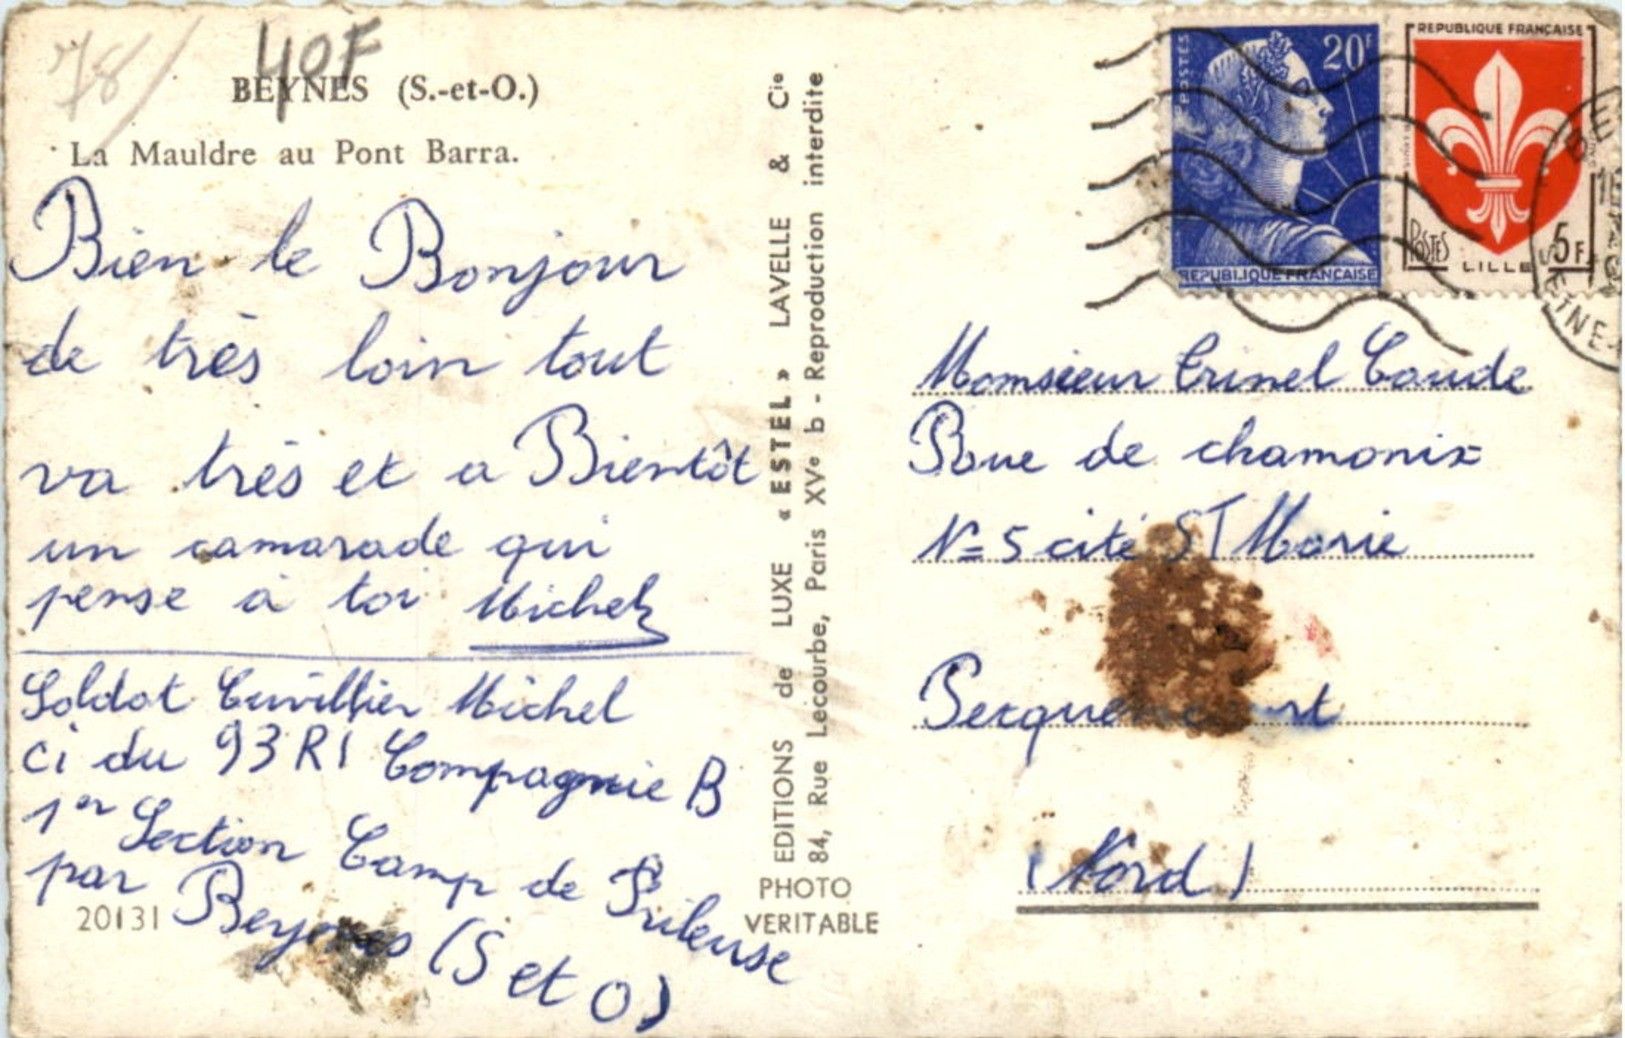 78/
40F
BEYNES (S.-et-O.)
La Mauldre au Pont Barra.
Bien le Bonjour
de très loin tout
va très et a Bientôt
un camarade qui
pense à toi Michel
Soldat Cuvillier Michel
Ci du 93 RI Compagnie B
1er Section Camp de Frileuse
par Beynes (S et O)
20131
EDITIONS de LUXE « ESTEL » LAVELLE & Cie
84, Rue Lecourbe, Paris XVe b - Reproduction interdite
PHOTO
VERITABLE
POSTES
20F
REPUBLIQUE FRANÇAISE
REPUBLIQUE FRANÇAISE
POSTES
LILLE
5F
BE
SEINE
Monsieur Crinel Caude
Rue de chamonix
N= 5 cité ST Marie
(Nord)